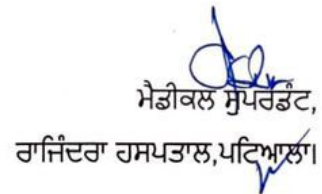 ਮੈਡੀਕਲ ਸੁਪਰਡੰਟ,
ਰਾਜਿੰਦਰਾ ਹਸਪਤਾਲ,ਪਟਿਆਲਾ।